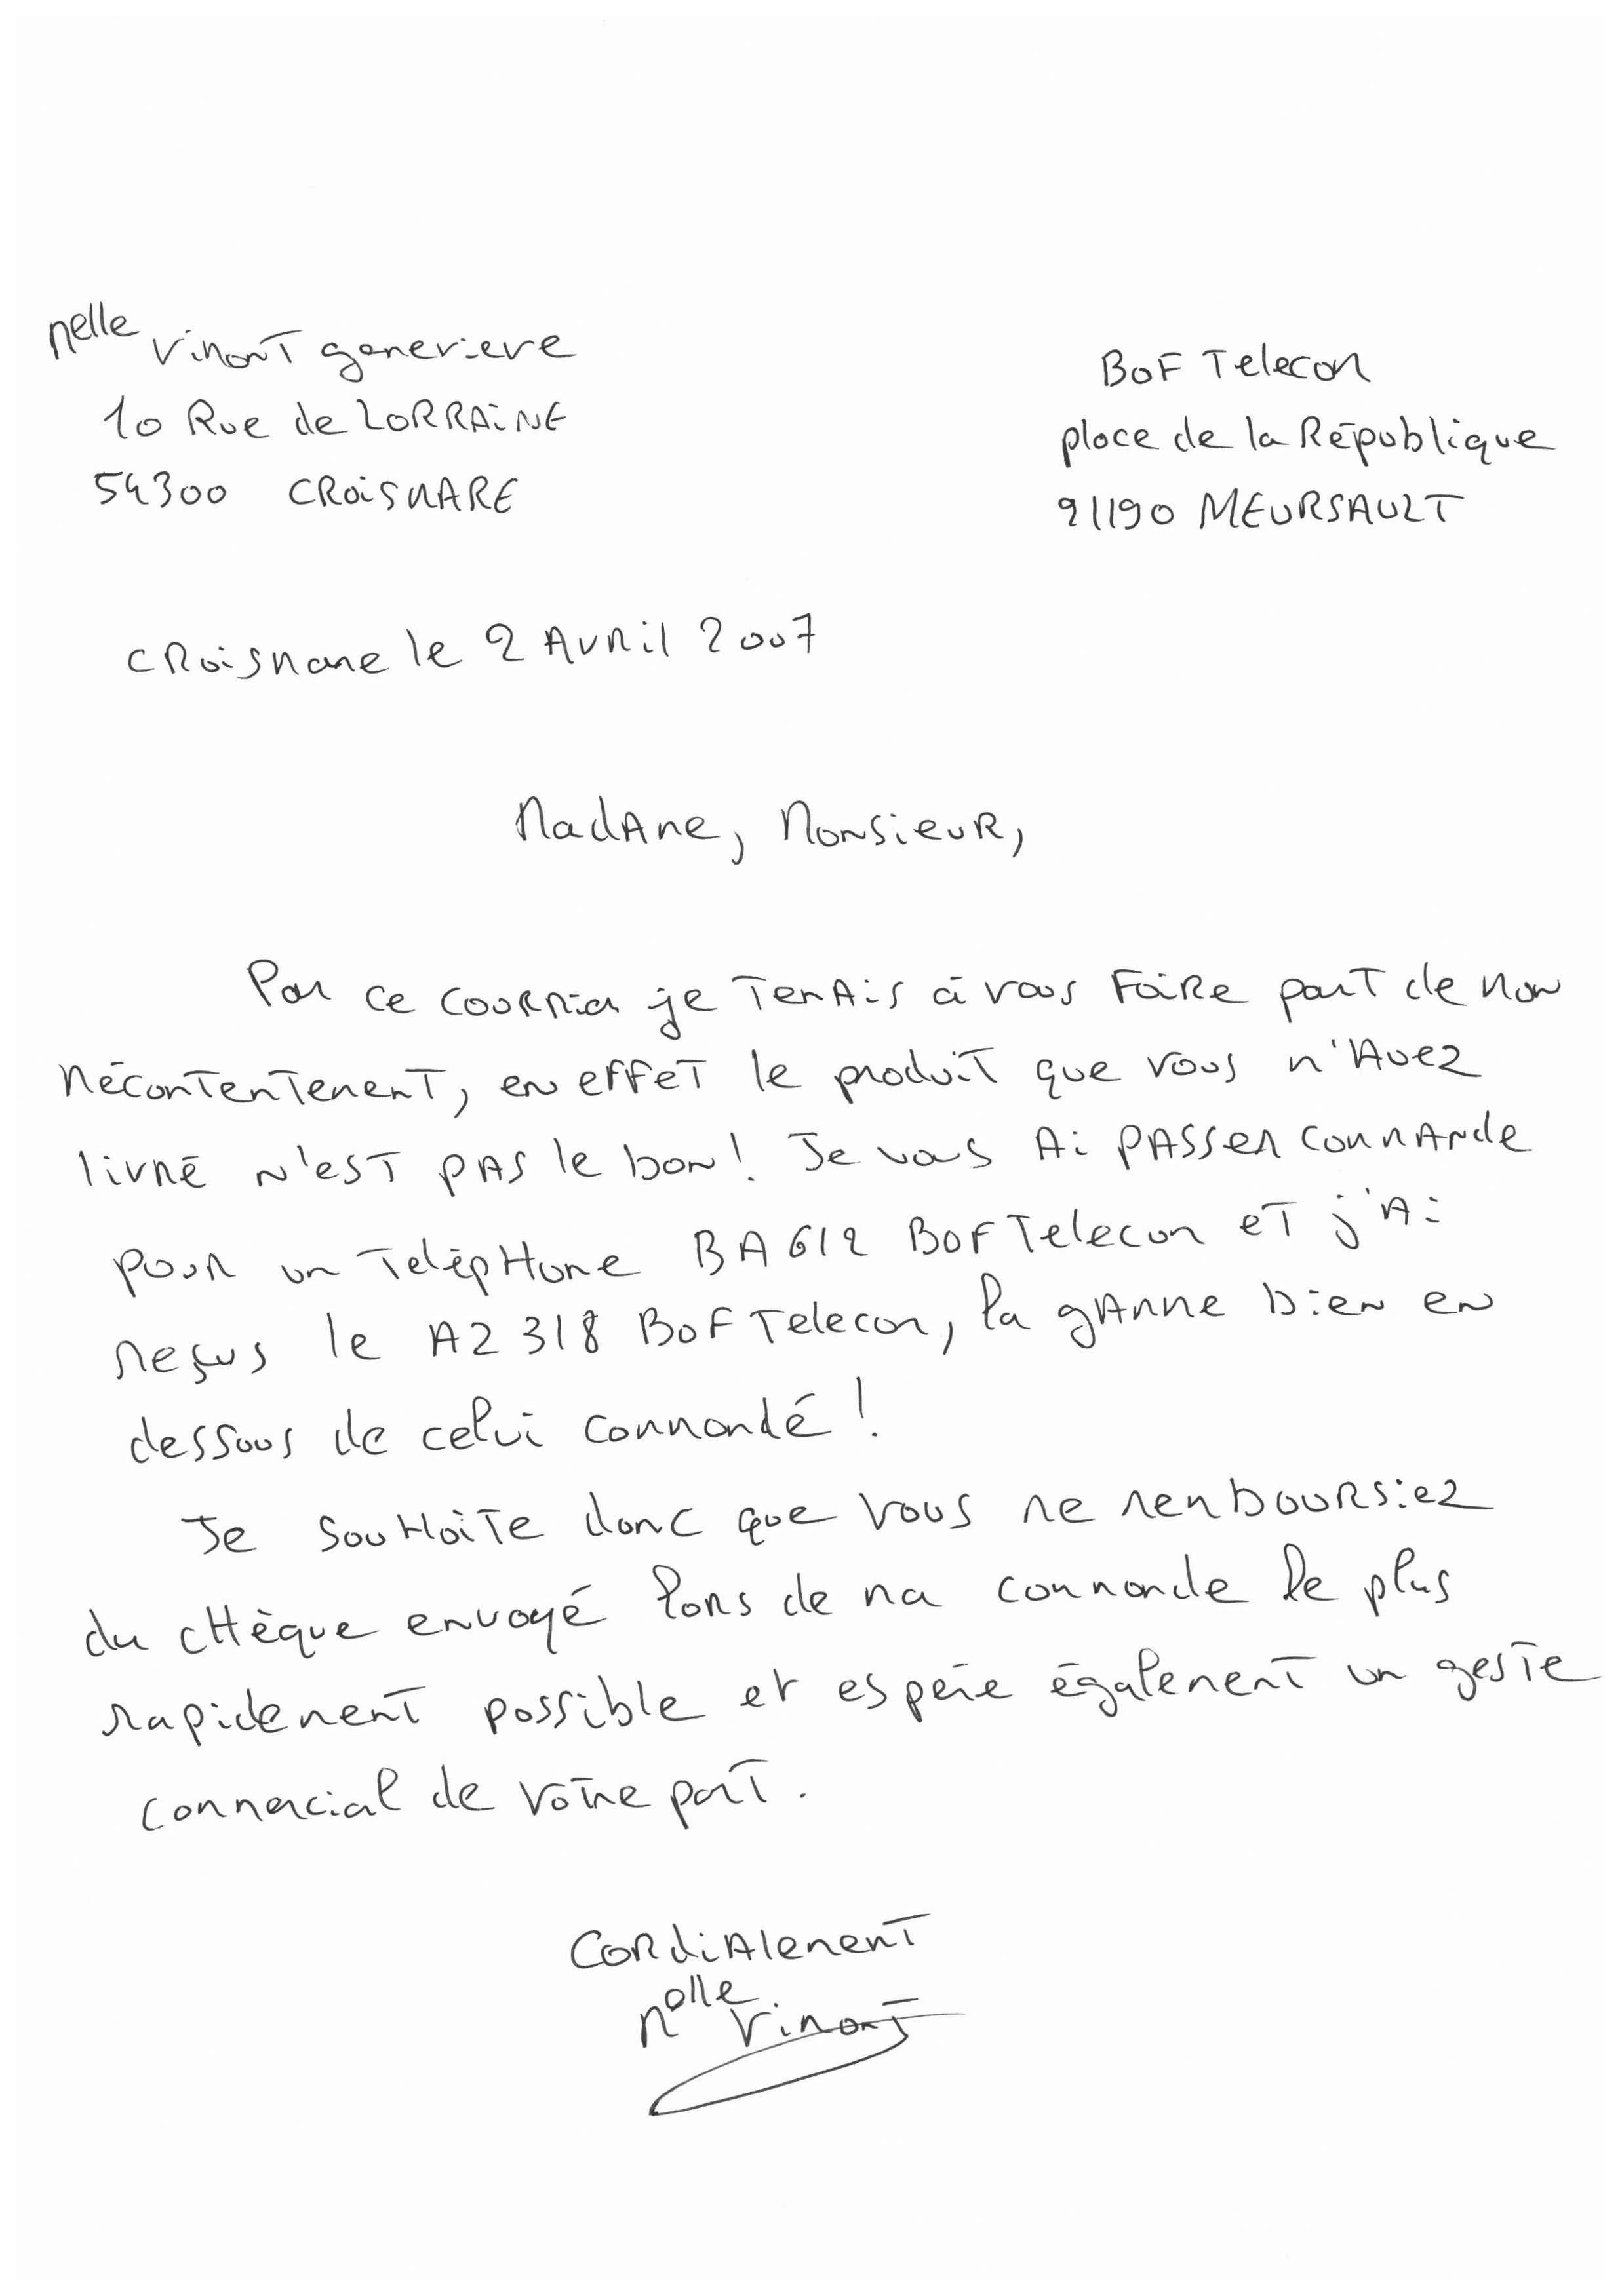 Melle Vimont genevieve
10 Rue de LORRAINE
54300 CROISMARE
BOF Telecom
place de la République
91190 MEURSAULT
CROismare le 2 Avril 2007
Madame, Monsieur,
Par ce courrier je tenais à vous faire part de mon
mécontentement, en effet le produit que vous m'avez
livré n'est pas le bon! Je vous ai passer commande
pour un téléphone BA612 BOF Telecom et j'ai
reçus le A2318 BOF Telecom, la gamme bien en
dessous de celui commandé!
Je souhaite donc que vous me remboursiez
du chèque envoyé lors de ma commande le plus
rapidement possible et espére également un geste
commercial de votre part.
Cordialement
Melle Vimont